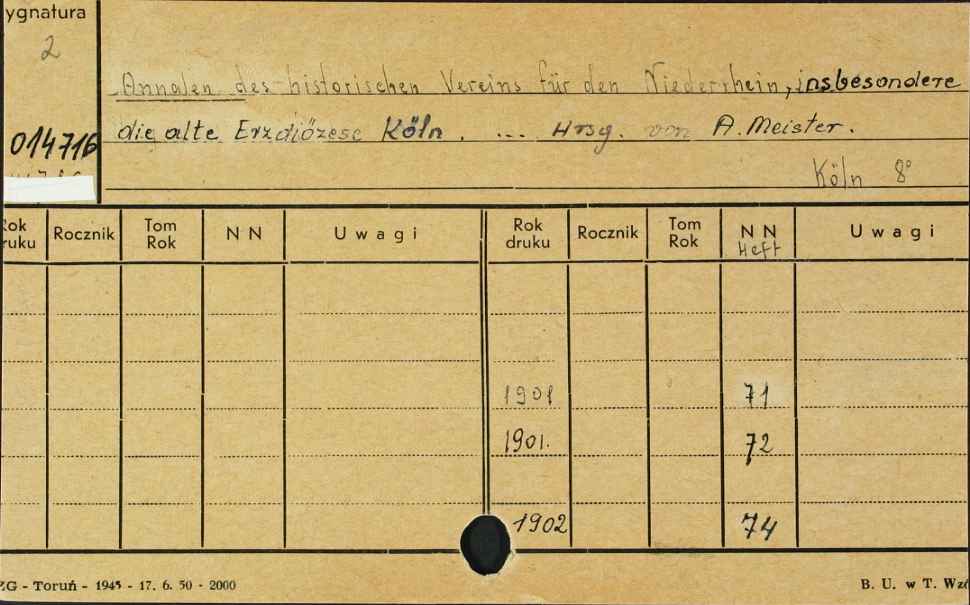 ygnatura
2
014716
Annalen des historischen Vereins für den Niederrhein, insbesondere
die alte Erzdiözese Köln. ... Hrsg. von A. Meister.
Köln 8°
Rok druku Rocznik Tom Rok NN Uwagi Rok druku Rocznik Tom Rok NN Heft Uwagi
1901 71
1901. 72
1902 74
ZG - Toruń - 1945 - 17. 6. 50 - 2000 B. U. w T. Wzó